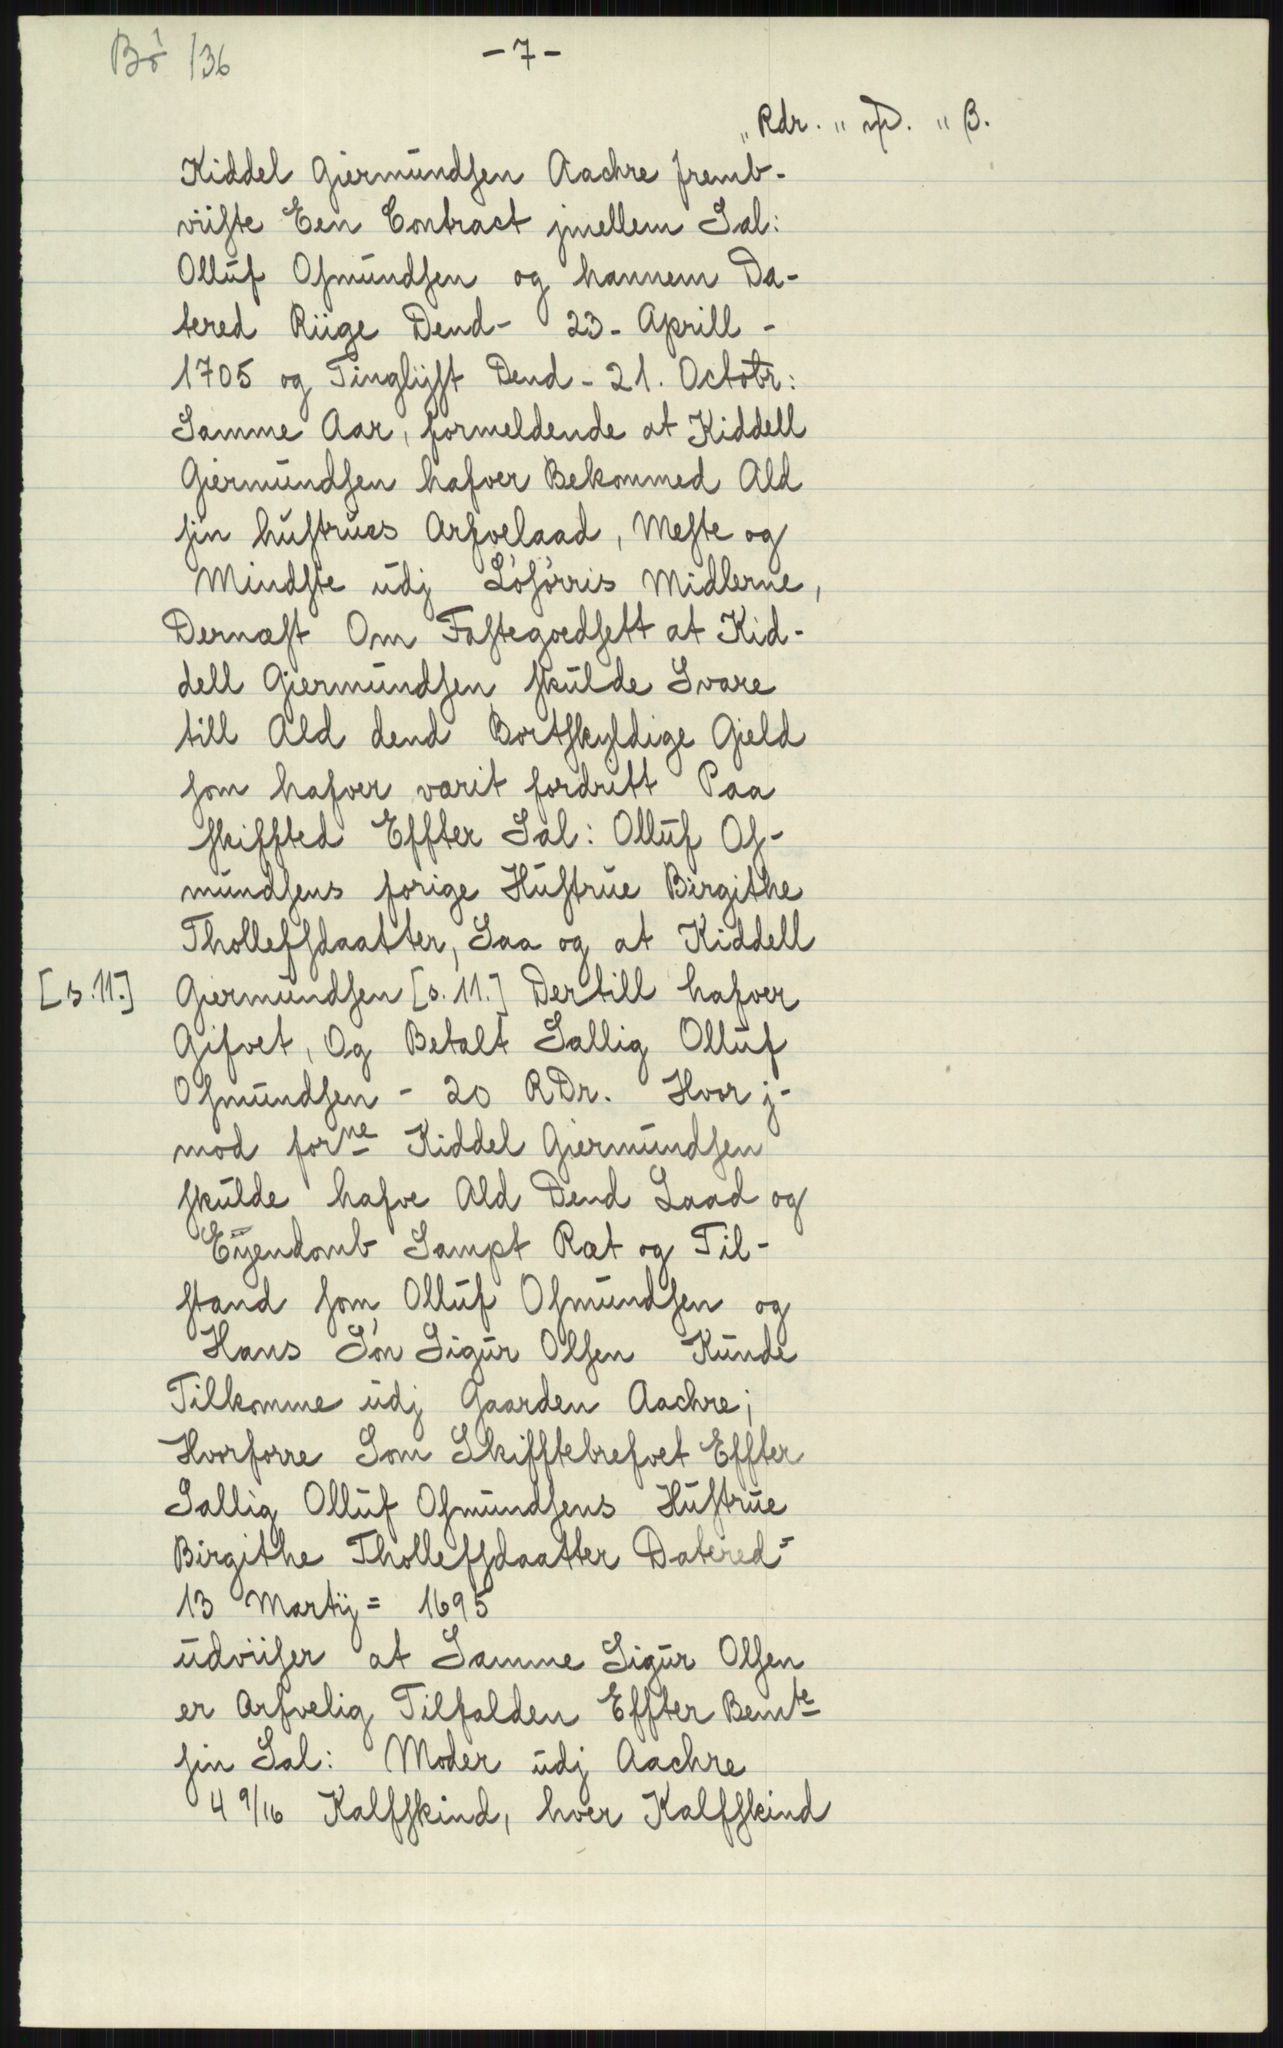 Bö /36
- 7 -
" Rdr. " mp. " β.
Kiddel Giermundsen Aachre fremb-
viiste Een Contract jmellem Sal:
Olluf Osmundsen og hannem Da-
tered Riige Dend - 23 - Aprill -
1705 og Tinglijst Dend - 21. Octobr:
Samme Aar, formeldende at Kiddell
Giermundsen hafver Bekommed Ald
sin hustrues Arfvelaad, Meste og
Mindste udj Lösörris Midlerne,
Dernæst Om Fastegoedsett at Kid-
dell Gjermundsen skulde Svare
till Ald dend Bortskyldige Gield
som hafver værit fordrett Paa
skiffted Effter Sal: Olluf Os-
mundsens forige Hustrue Birgithe
Tholleffsdaatter, Saa og at Kiddell
[s. 11.] Giermundsen [s. 11.] Dertill hafver
Gifvet, Og Betalt Sallig Olluf
Osmundsen - 20 RDr. Hvor j-
mod forne Kiddel Giermundsen
skulde hafve Ald Dend Laad og
Eijendomb Sampt Ræt og Til-
stand som Olluf Osmundsen og
Hans Sön Sigur Olsen Kunde
Tilkomme udj Gaarden Aachre;
Hvorforre Som Skifftebrefvet Effter
Sallig Olluf Osmundsens Hustrue
Birgithe Tholleffsdaatter Datered =
13 Martij = 1695
udviiser at Samme Sigur Olsen
er Arfvelig Tilfalden Effter Bemte
sin Sal: Moder udj Aachre
4 9/16 Kalfskind, hver Kalfskind